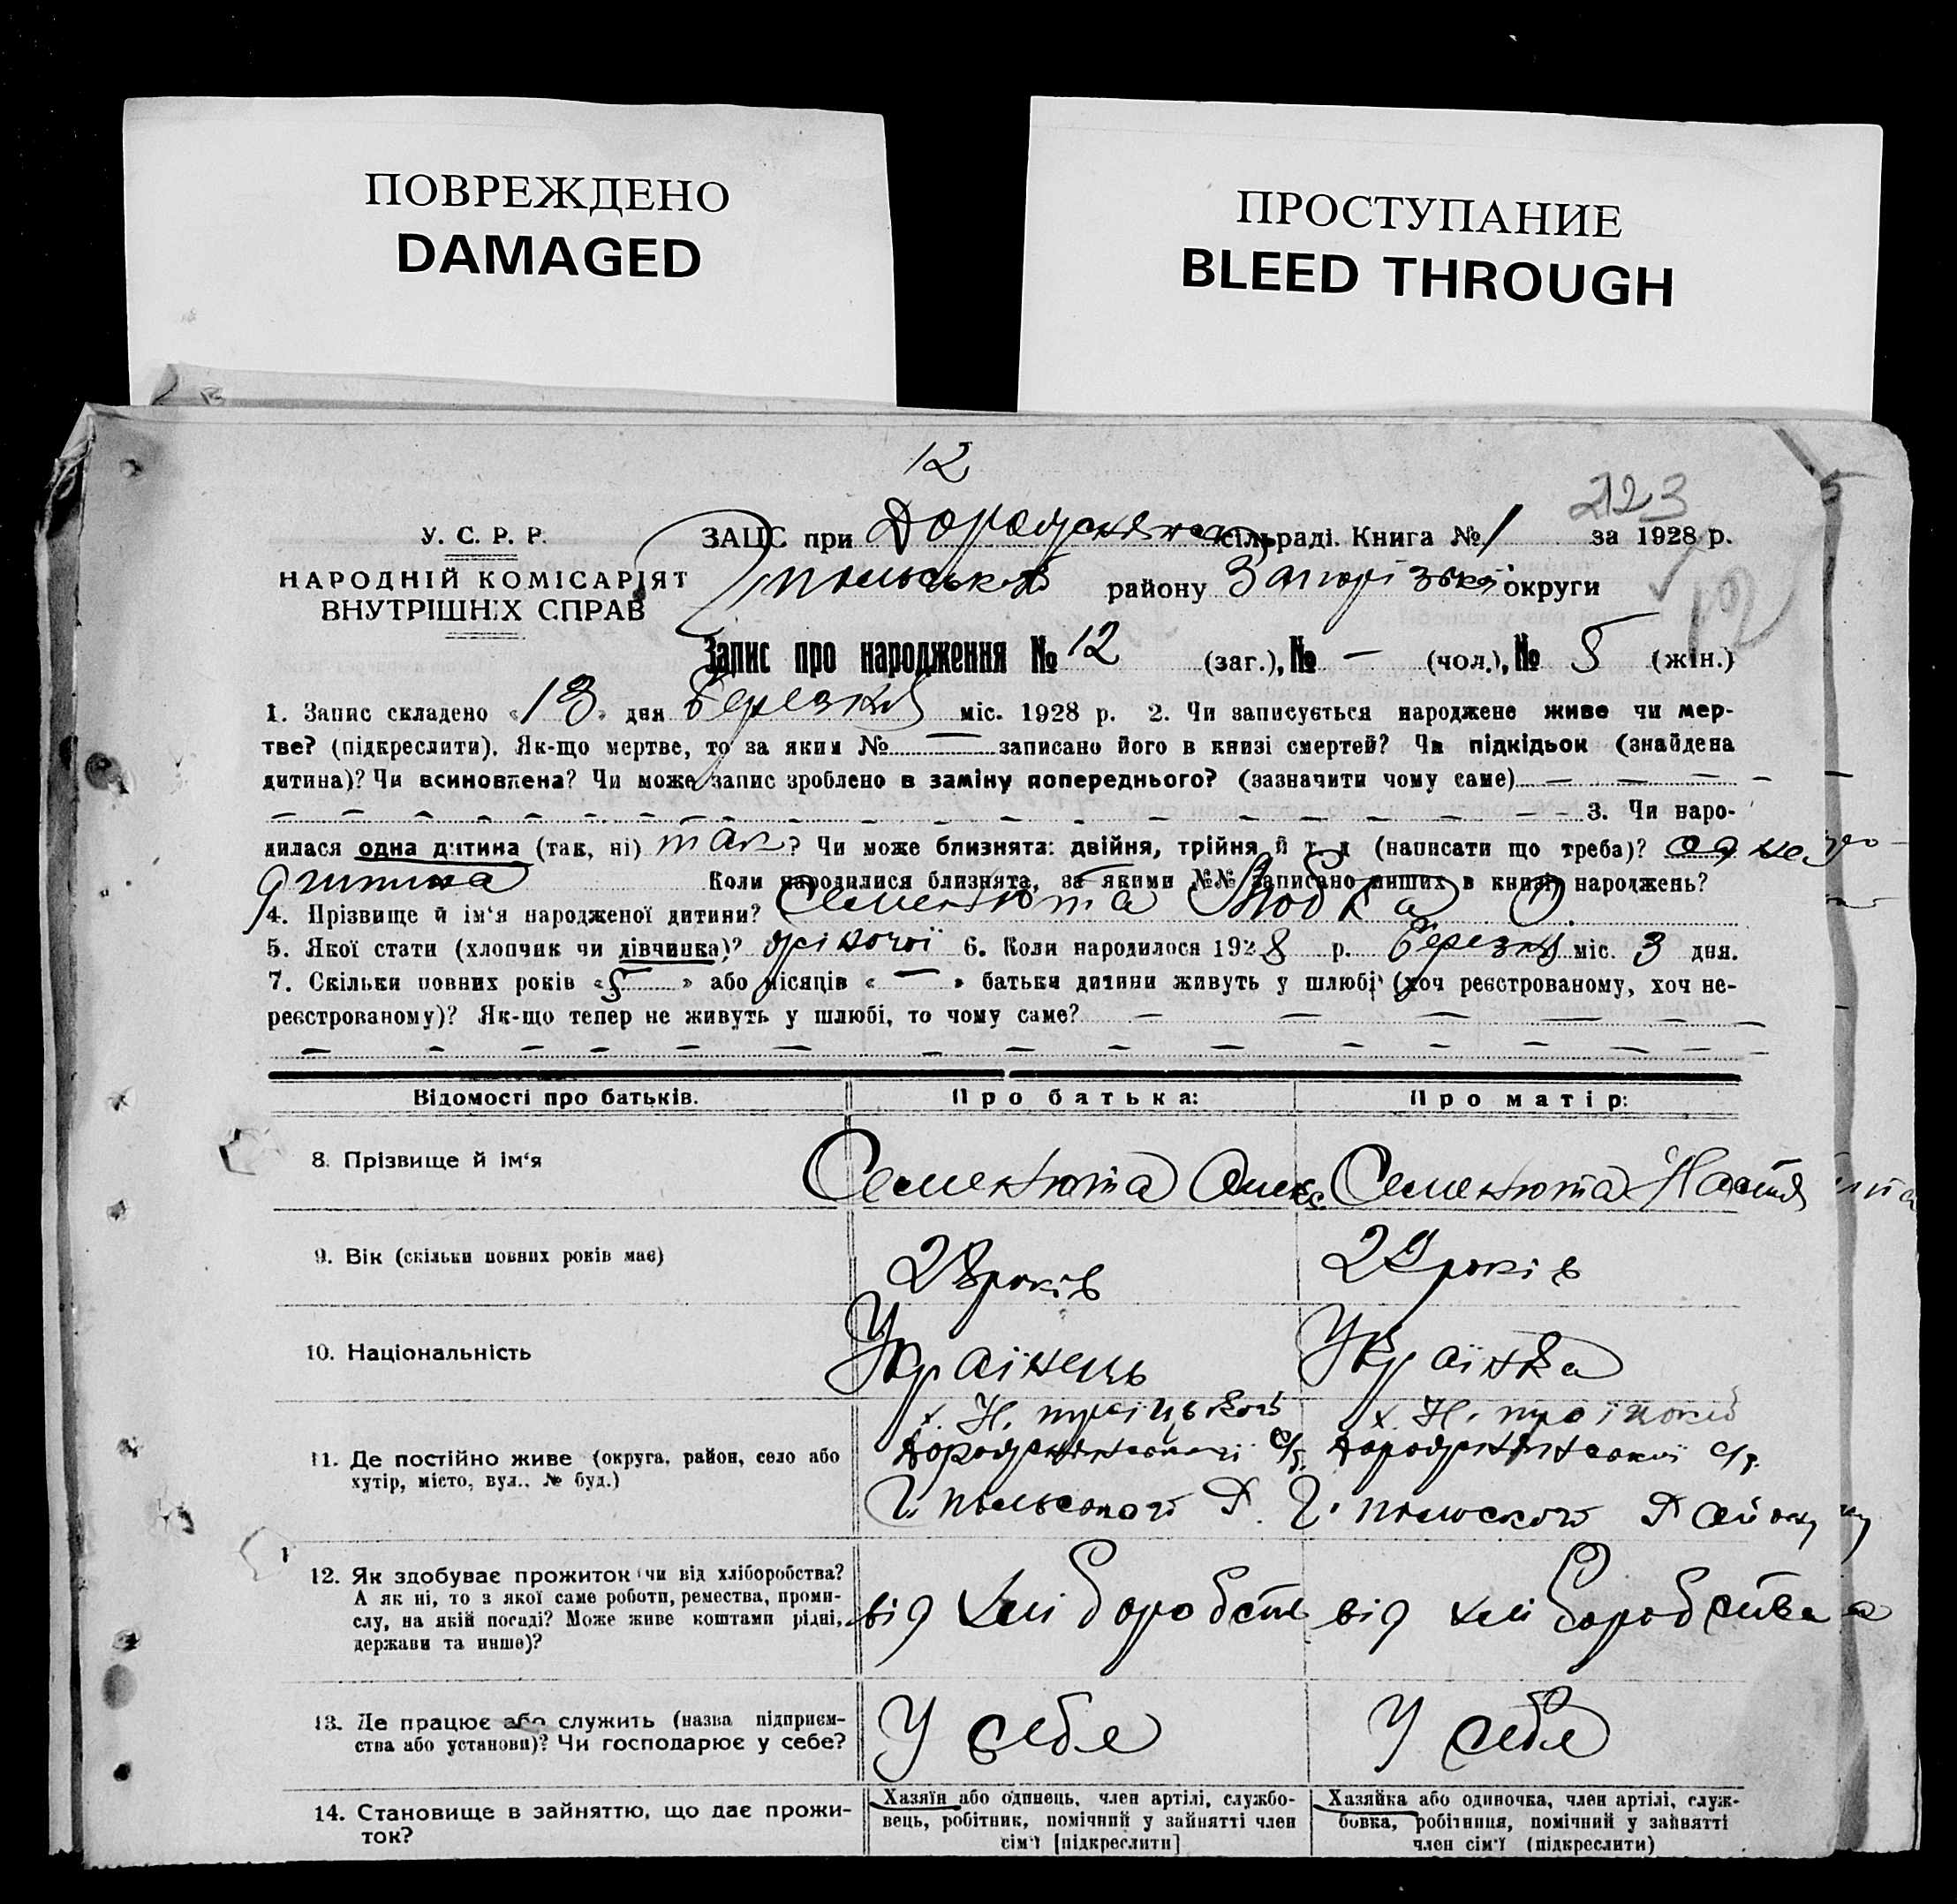 ПОВРЕЖДЕНО
DAMAGED
ПРОСТУПАНИЕ
BLEED THROUGH
12
223
У. С. Р. Р.
НАРОДНІЙ КОМІСАРІЯТ
ВНУТРІШНІХ СПРАВ
ЗАЦС при сільраді. Книга № 1 за 1928 р.
району Запорізької округи
12
Запис про народження № 12 (заг.), № — (чол.), № 5 (жін.)
1. Запис складено «13» дня Березня міс. 1928 р. 2. Чи записується народжене живе чи мер-
тве? (підкреслити). Як-що мертве, то за яким № — записано його в книзі смертей? Чи підкідьок (знайдена
дитина)? Чи всиновлена? Чи може запис зроблено в заміну попереднього? (зазначити чому саме) — — — — —
— — — — — — — — — — — — — — — — 3. Чи наро-
дилася одна дитина (так, ні) так? Чи може близнята: двійня, трійня й т. д (написати що треба)? одна
дитина Коли народилися близнята, за якими №№ записано инших в книзі народжень?
4. Прізвище й ім'я народженої дитини? Семенюта
5. Якої стати (хлопчик чи дівчинка)? дівочої 6. Коли народилося 1928 р. Березня міс. 3 дня.
7. Скільки повних років «5» або місяців «—» батьки дитини живуть у шлюбі (хоч реєстрованому, хоч не-
реєстрованому)? Як-що тепер не живуть у шлюбі, то чому саме? — — — — —
— — — — — — — — — — — — — — — —
Відомості про батьків. Про батька: Про матір:
8. Прізвище й ім'я Семенюта Олекс Семенюта Настя
9. Вік (скільки повних років має) 28 років 29 років
10. Національність Українець Українка
х. Н. троіцького х. Н. троіцкого
11. Де постійно живе (округа, район, село або с/р. с/р.
хутір, місто, вул., № буд.) Р. Району
12. Як здобуває прожиток чи від хліборобства?
А як ні, то з якої саме роботи, ремества, проми- від хліборобств від хліборобства
слу, на якій посаді? Може живе коштами рідні,
держави та инше)?
13. Де працює або служить (назва підприєм- У себе У себе
ства або установи)? Чи господарює у себе?
14. Становище в зайняттю, що дає прожи- Хазяїн або одинець, член артілі, службо- Хазяйка або одиночка, член артілі, служ-
ток? вець, робітник, помічний у зайнятті член бовка, робітниця, помічний у зайнятті
сім'ї [підкреслити] член сім'ї (підкреслити)